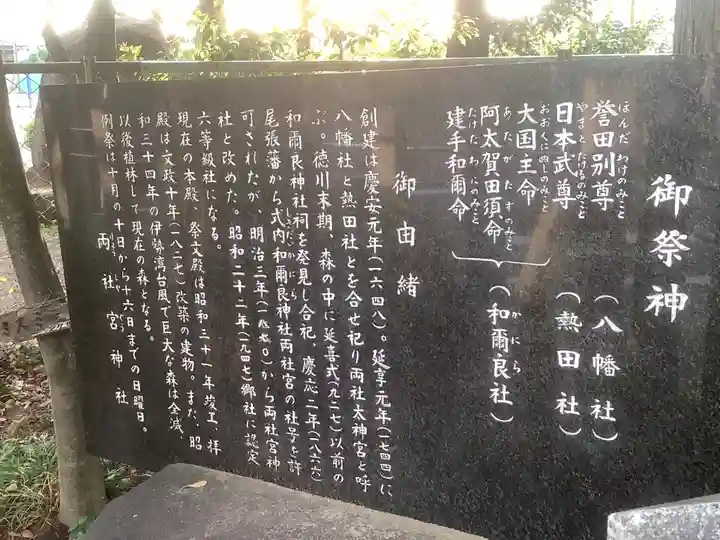 御祭神
誉田別尊 (八幡社)
ほんだ わけのみこと
日本武尊 (熱田社)
やまと たけるのみこと
大国主命
おおくにぬしのみこと
阿太賀田須命 (和爾良社)
あたがたすのみこと
かにら
建手和爾命
たけたわにのみこと
御由緒
創建は慶安元年(一六四八)。延享元年(一七四四)に
八幡社と熱田社とを合せ祀り両社太神宮と呼
ぶ。徳川末期、森の中に延喜式(九二七)以前の
和爾良神社祠を発見し合祀、慶応二年(一八六六)
尾張藩から式内和爾良神社両社宮の社号を許
可されたが、明治三年(一八七〇)から両社宮神
社と改めた。昭和二十二年(一九四七)郷社に認定
六等級社になる。
現在の本殿、祭文殿は昭和三十一年竣工、拝
殿は文政十年(一八二七)改築の建物。また、昭
和三十四年の伊勢湾台風で巨大な森は全滅、
以後植林して現在の森となる。
例祭は十月の十日から十六日までの日曜日。
両社宮神社